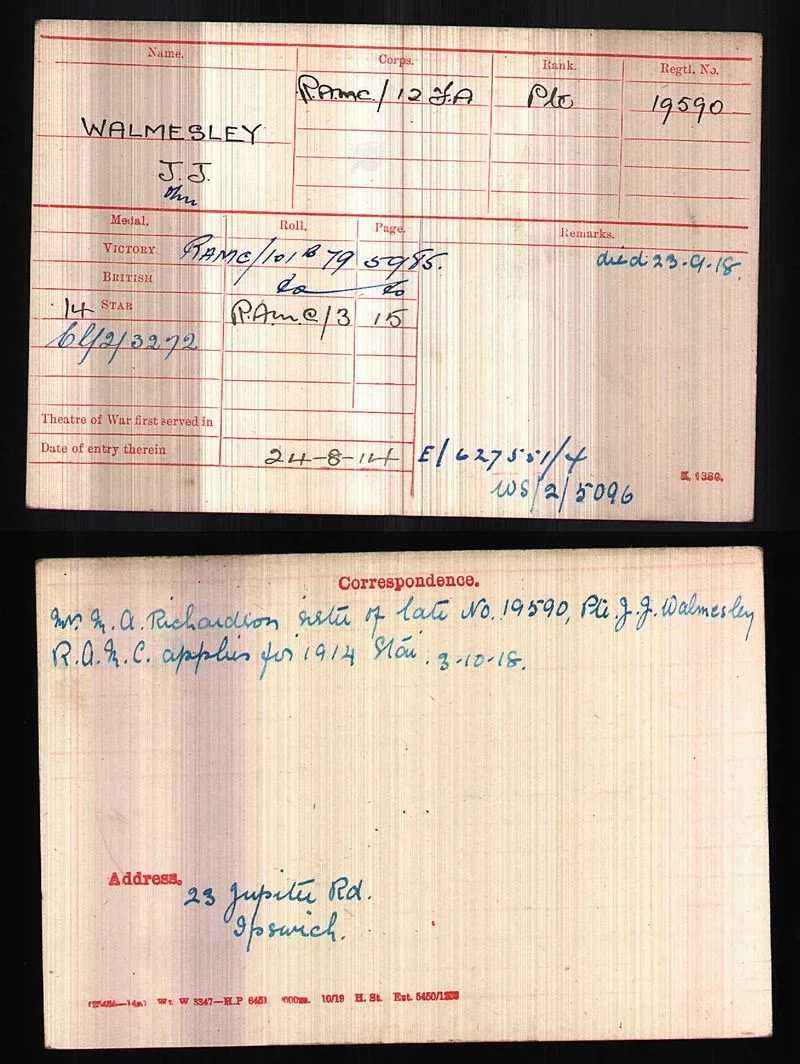 Name.
Corps.
Rank.
Regtl. No.
R.A.M.C./12 F.A
Pte
19590
WALMESLEY
J.J.
ohn
Medal.
Roll.
Page.
Remarks.
VICTORY
RAMC/101 B 79
5985.
died 23-9-18.
BRITISH
do
do
14 STAR
R.A.M.C/3
15
2/3272
Theatre of War first served in
Date of entry therein
24-8-14
E/627551/4
WS/2/5096
K. 1380.
Correspondence.
Mrs M. A. Richardson sister of late No. 19590, Pte J. J. Walmesley
R.A.M.C. applies for 1914 Star. 3-10-18.
Address.
23 Jupiter Rd.
Ipswich.
Wt. W 3347—H.P 10/19 H. St.